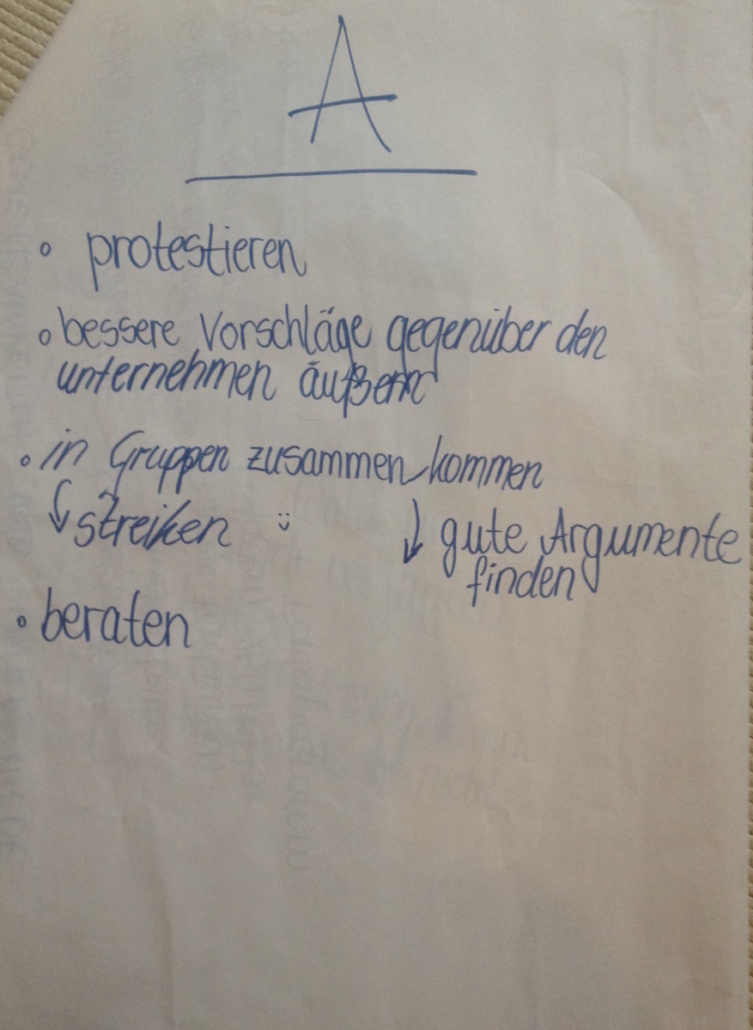 A
◦ protestieren
◦ bessere Vorschläge gegenüber den
unternehmen äußern
◦ in Gruppen zusammen kommen
↳ streiken ü ↓ gute Argumente
finden
◦ beraten